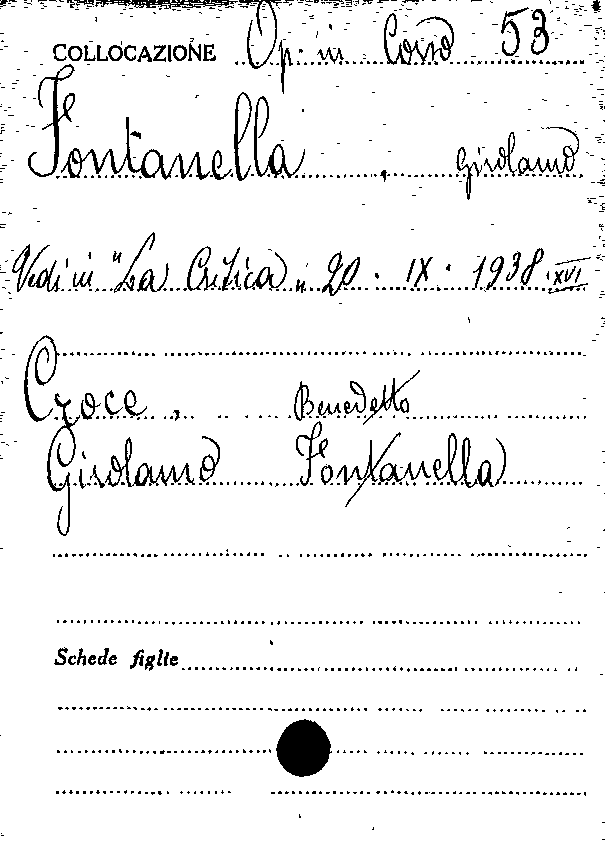 COLLOCAZIONE Op. in Corso 53
Fontanella, Girolamo
Vedi in "La Critica" 20. IX. 1938. XVI
Croce, Benedetto
Girolamo Fontanella
Schede figlie